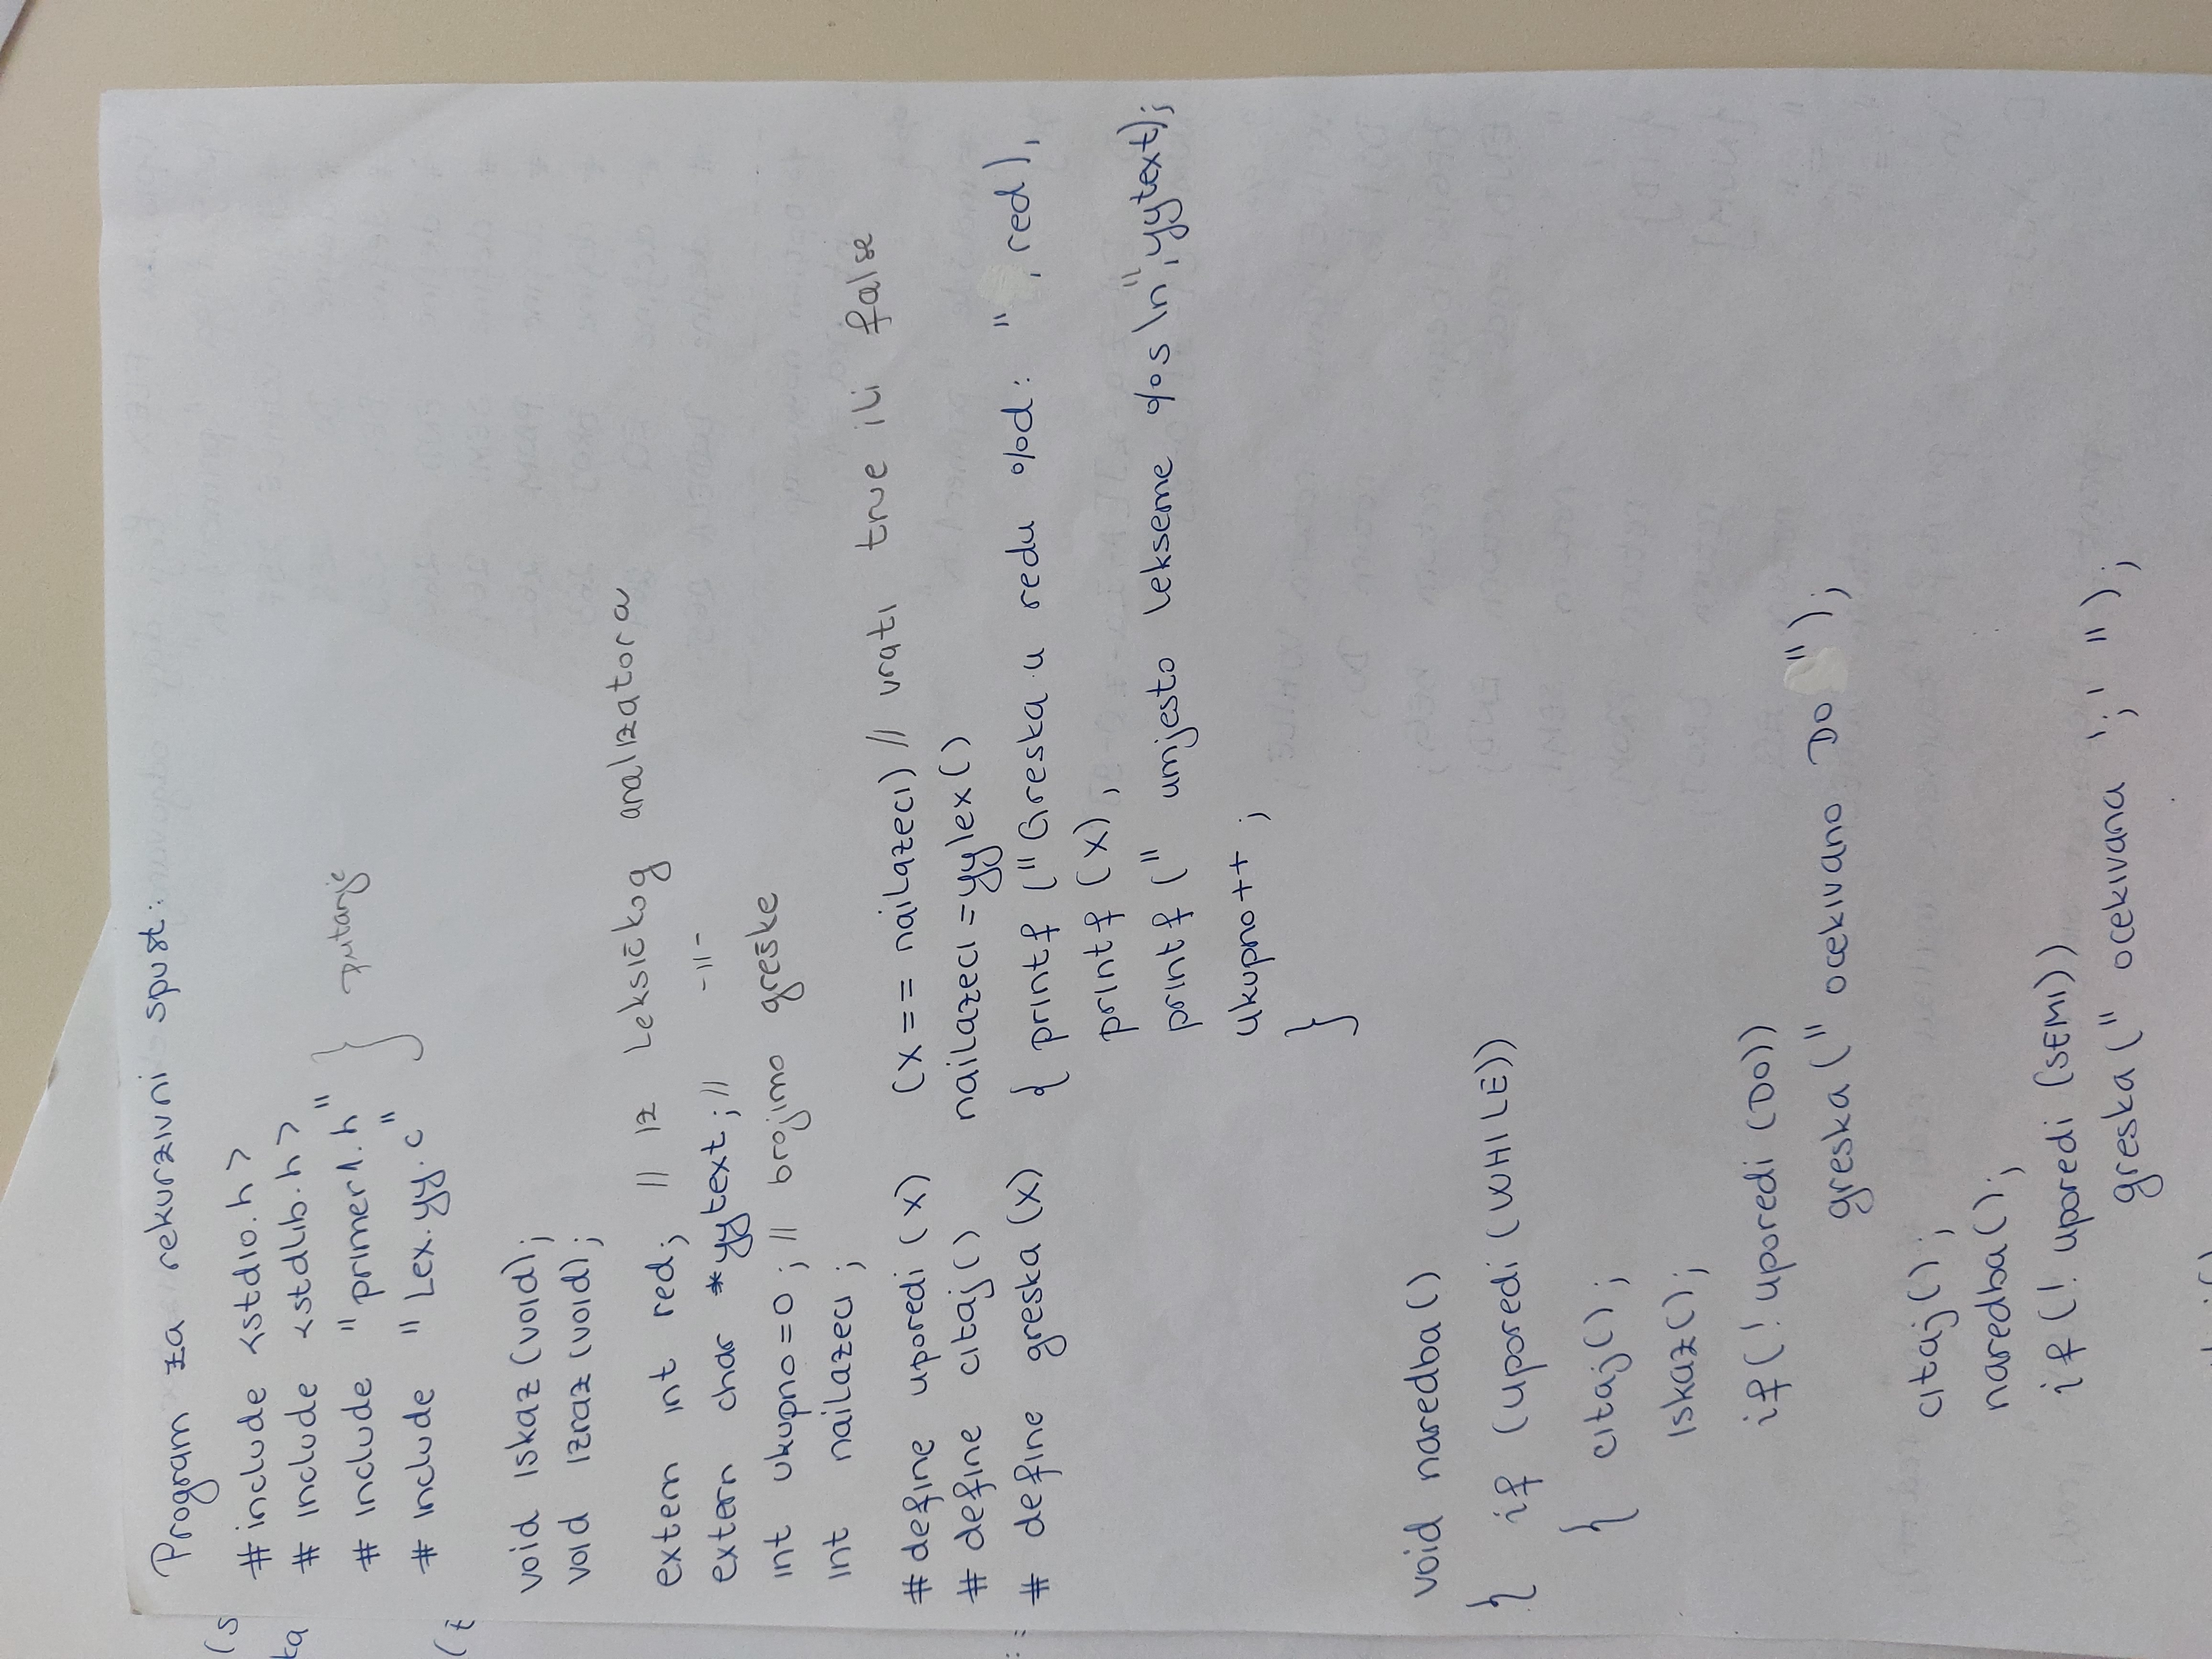 Program za rekurzivni spust:
# include <stdio.h>
# include <stdlib.h>
# include "primer1.h"
# include "Lex.yy.c"
} putanje
void iskaz (void);
void izraz (void);
extern int red; // iz Leksičkog analizatora
extern char *yytext; // -||-
int ukupno=0; // brojimo greške
int nailazeci;
# define uporedi (x) (x == nailazeci) // vrati true ili false
# define citaj() nailazeci = yylex()
# define greska (x) { printf ("Greska u redu %d: ", red),
printf (x),
printf (" umjesto lekseme %s \n", yytext);
ukupno++ ;
}
void naredba ()
{ if (uporedi (WHILE))
{ citaj();
iskaz();
if(! uporedi (DO))
greska (" ocekivano DO ");
citaj();
naredba();
if (! uporedi (SEMI))
greska (" ocekivana ';' ");